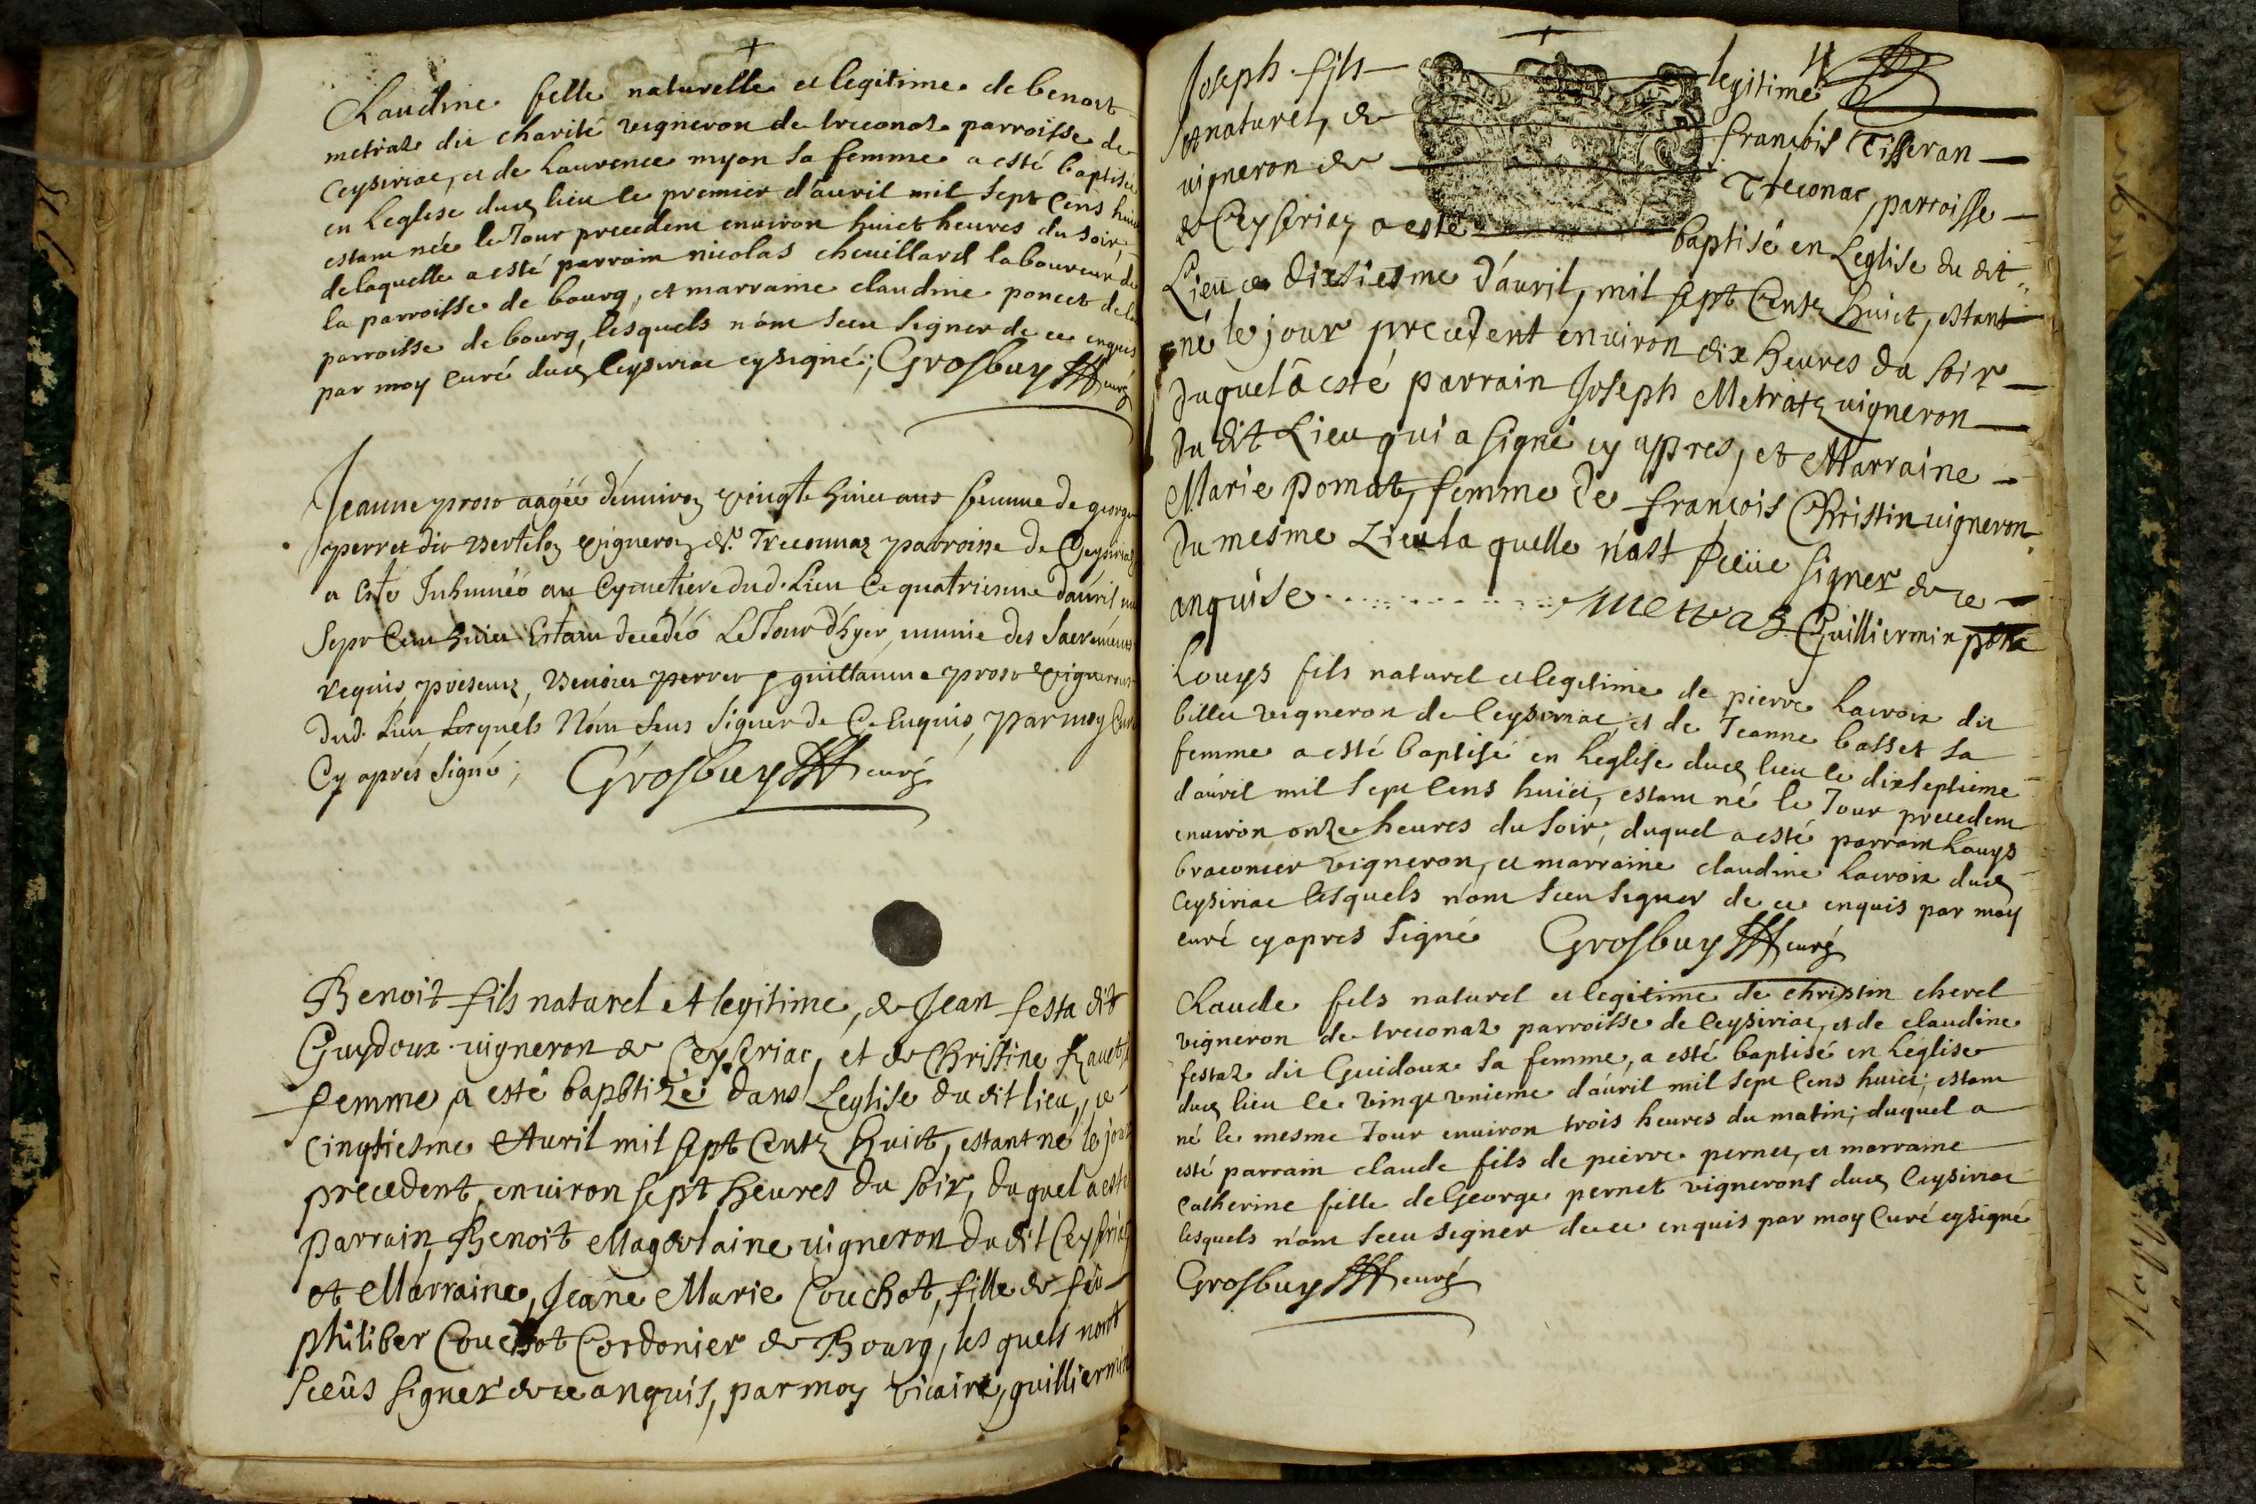 Claudine fille naturelle et legitime de benoit
metraz dit charité vigneron de treconaz parroisse de
Ceysiriac, et de Laurence myon sa femme a esté baptisée
en Leglise dud lieu le premier d'auril mil sept Cens huict
estant née le Jour precedent enuiron huict heures du soir
de laquelle a esté parrain nicolas cheuillard laboureur de
la parroisse de bourg, et marraine claudine poncet de la
parroisse de bourg, lesquels n'ont sceu signer de ce enquis
par moy curé dud Ceysiriac cy signé; Grosbuy curé
Jeanne prost aagée d'enuiron vingte huict ans femme de george
perret dit vertelon vigneron de Treconnaz parroisse de Ceysiriaz
a Esté Inhumée au Cymetiere dud. Lieu Ce quatriesme dauril mil
Sept Cent huict Estant decedéé Le Jour d'hyer, munie des Sacrements
requis presents, Benoit perret & guillaume prost vignerons
dud. Lieu Lesquels N'ont sceus signer de Ce Enquis, par moy Curé
Cy aprés signé; Grosbuy curé
Benoit fils naturel et legitime, de Jean festa dit
Guydoux vigneron de Ceyseriac, et de Christine Rauet sa
femme a esté bapbtizé dans Leglise du dit lieu, ce
cinqtiesme Auril mil sept Centz huict, estant né le jour
precedent, enuiron sept heures du soir, du quel a esté
parrain Benoit Magdelaine uigneron du dit Ceyseriaz
et Marraine, Jeane Marie Couchot, fille de feû
philiber Couchot Cordonier de Bourg, les quels n'ont
sceûs signer de ce anquis, par moy vicaire, guilliermin
Joseph fils legitime 4
et naturel, de francois Tisseran
uigneron de Treconac, parroisse
de Ceyseriaz a esté baptisé en Leglise du dit
Lieu ce dixsiesme d'auril, mil sept Centz huict, estant
né le jour precedent enuiron dix heures du soir
duquel â esté parrain Joseph Metratz uigneron
du dit Lieu qui a signé cy apres, et Marraine
Marie Pomat, femme de françois Christin uigneron
du mesme Lieu la quelle n'ast sceüe signer de ce
anquise metraz Guilliermin
Louys fils naturel et legitime de pierre Lacroix dit
billet vigneron de Ceysiriac, et de Jeanne basset sa
femme a esté baptisé en Leglise dud lieu le dixseptieme
d'auril mil sept Cens huict, estant né le Jour precedent
enuiron onze heures du soir, duquel a esté parrain Louys
braconier vigneron, et marraine claudine Lacroix dud
Ceysiriac lesquels n'ont sceu signer de ce enquis par moy
curé cy apres signé Grosbuy curé
Claude fils naturel et legitime de christin cherel
vigneron de treconaz parroisse de Ceysiriac, et de claudine
festaz dit Guidoux sa femme, a esté baptisé en Leglise
dud lieu le vingt vnieme d'auril mil sept Cens huict, estant
né le mesme Jour enuiron trois heures du matin; duquel a
esté parrain claude fils de pierre pernet, et marraine
Catherine fille de George pernet vignerons dud Ceysiriac
lesquels n'ont sceu signer de ce enquis par moy Curé cy signé
Grosbuy curé